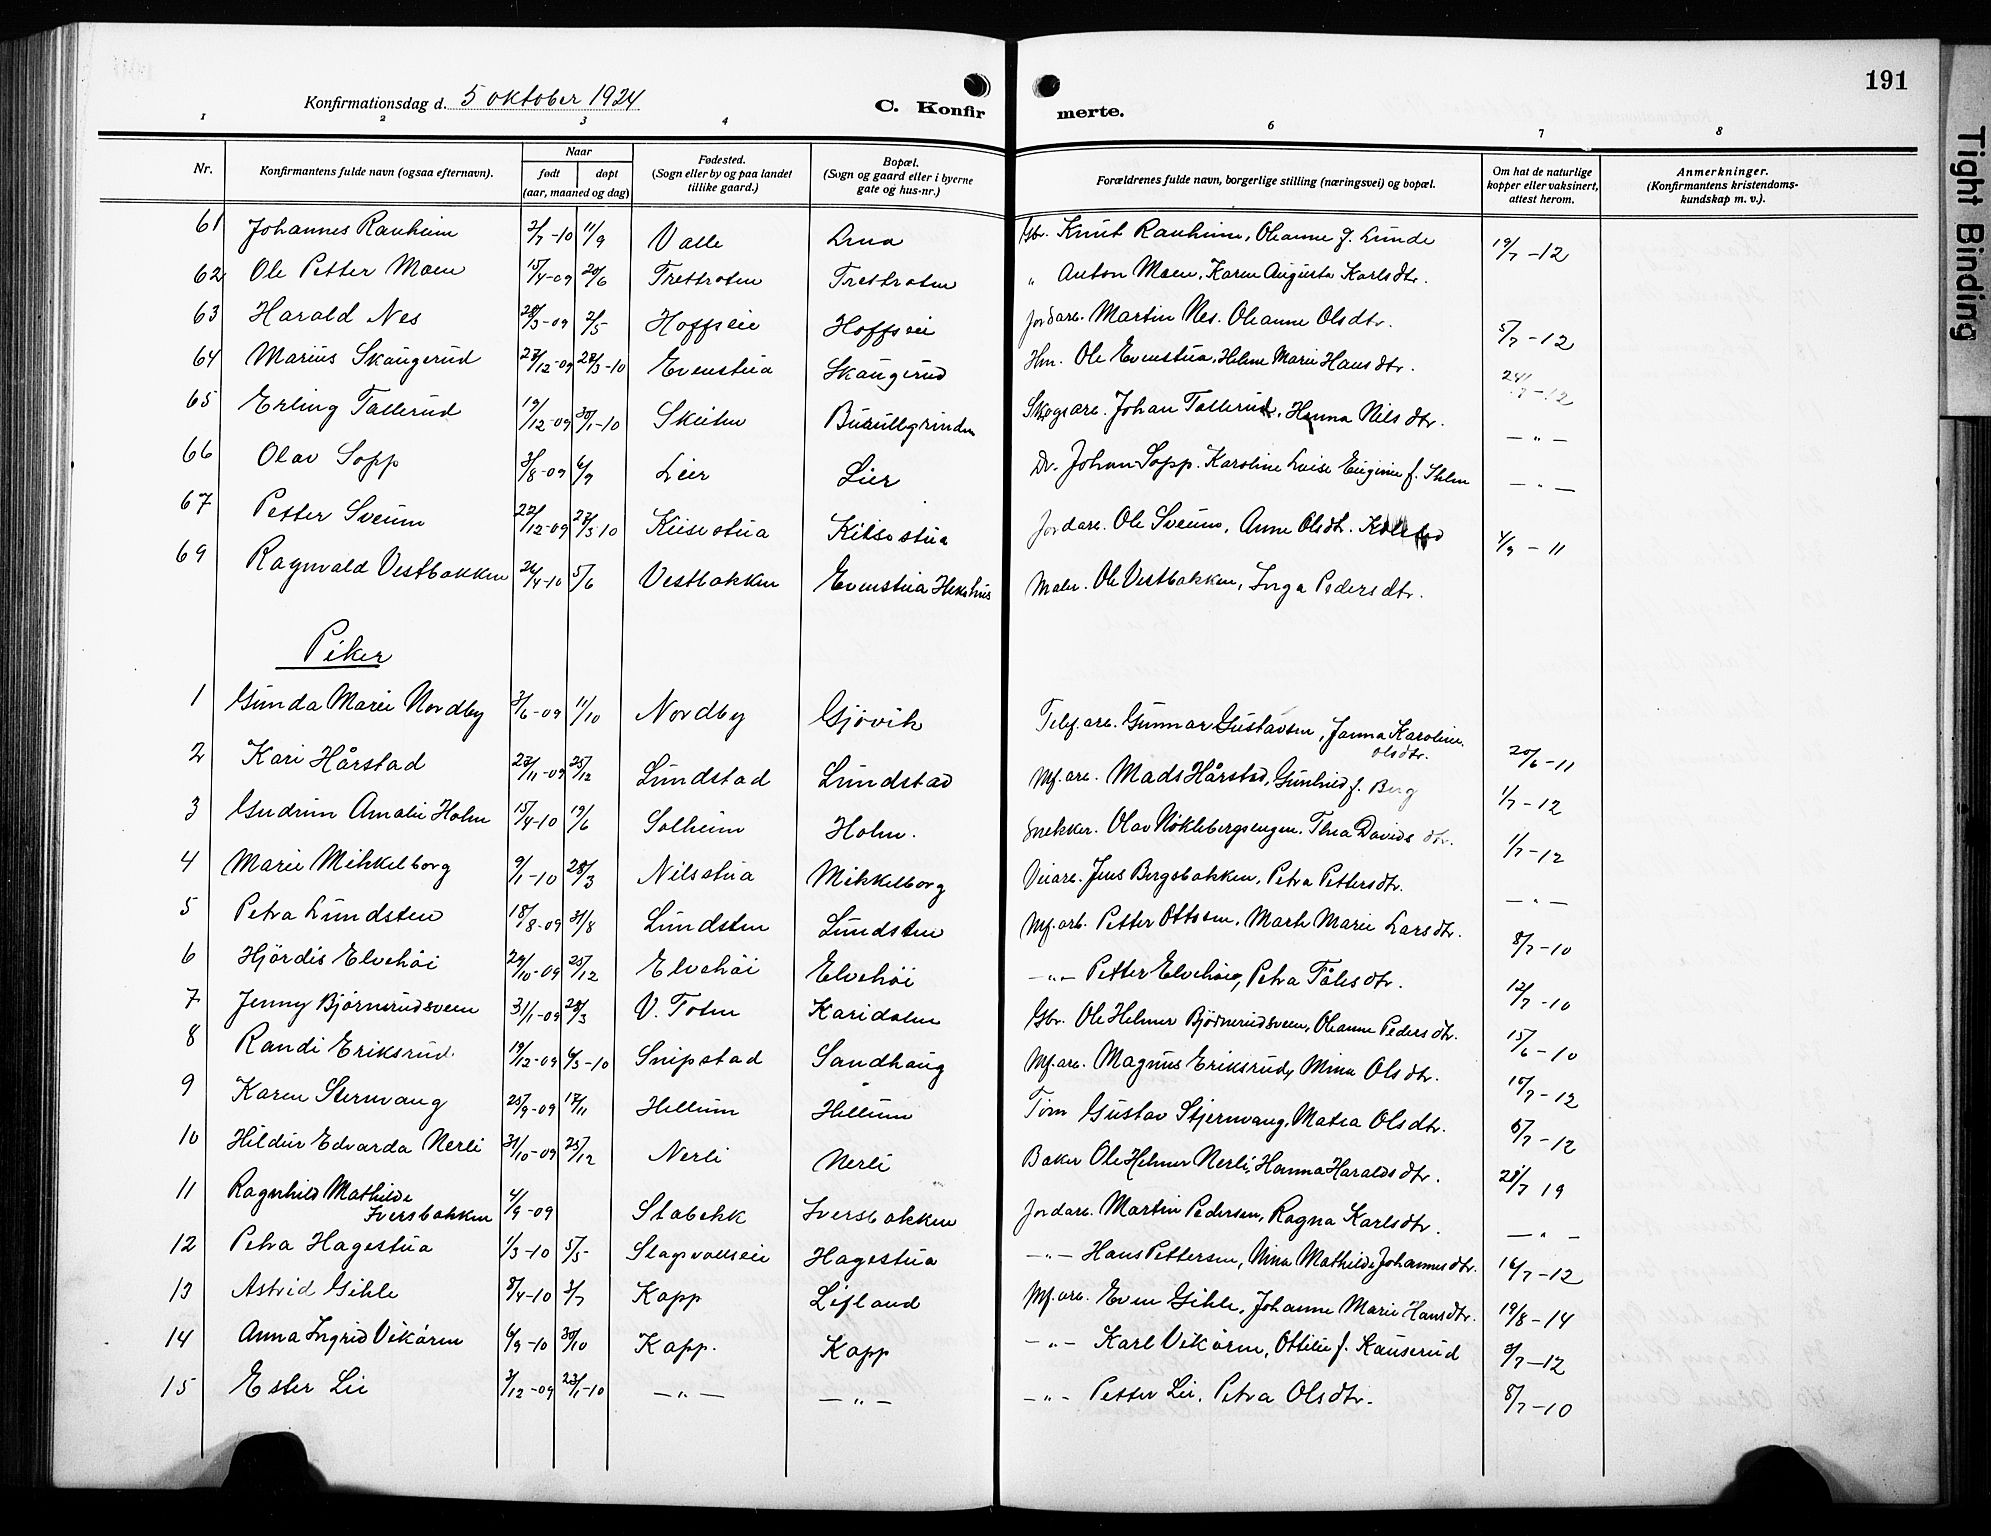 191
Konfirmationsdag d. 5 oktober 1924
C. Konfirmerte.
1 2 3 4 6 7 8
Nr. | Konfirmantens fulde navn (ogsaa efternavn). | Naar født døpt (aar, maaned og dag) | Fødested. (Sogn eller by og paa landet tillike gaard.) | Bopæl. (Sogn og gaard eller i byerne gate og hus-nr.) | Forældrenes fulde navn, borgerlige stilling (næringsvei) og bopæl. | Om hat de naturlige kopper eller vaksinert, attest herom. | Anmerkninger. (Konfirmantens kristendoms-kundskap m. v.).
61 Johannes Rauheim 2/7-10 11/9 Valle Lena Gbr. Knut Rauheim, Oleanne f. Lunde 19/7-12
62 Ole Petter Moen 15/4-09 20/6 Trettroten Trettroten " Anton Moen, Karen Augusta Karlsdtr.
63 Harald Nes 28/3-09 2/5 Hoffseie Hoffseie Jordarb. Martin Nes. Oleanne Olsdtr. 5/7-12
64 Marius Skaugerud 27/12-09 28/3-10 Evenstua Skaugerud Hm. Ole Evenstua, Helene Marie Hansdtr. 24/7-12
65 Erling Tallerud 19/12-09 30/1-10 Skeiten Burullgrinden Skogsarb. Johan Tallerud, Hanna Nilsdtr. -"-
66 Olav Sopp 3/8-09 6/9 Leier Lier Dr. Johan Sopp. Karoline Lovise Eugenie f. Ihlen -"-
67 Petter Sveum 22/12-09 27/3-10 Kiisestua Kiisestua Jordarb. Ole Sveum, Anne Olsdtr. Kolstad 4/9-11
69 Ragnvald Vestbakken 26/4-10 5/6 Vestbakken Evenstua Hekshus Maler. Ole Vestbakken, Inga Pedersdtr.
Piker
1 Gunda Marie Nordby 3/6-09 11/10 Nordby Gjövik Telef.arb. Gunnar Gustavsen, Janna Karoline Olsdtr. 20/6-11
2 Kari Hårstad 22/11-09 25/12 Lundstad Lundstad Mf.arb. Mads Hårstad, Gunhild f. Berg 1/7-12
3 Gudrun Amalie Holm 15/4-10 19/6 Solheim Holm. Snekker. Olav Nöklebergsengen. Thea Davidsdtr. 1/7-12
4 Marie Mikkelborg 9/1-10 28/3 Nilsstua Mikkelborg Veiarb. Jens Bergsbakken, Petra Pettersdtr. -"-
5 Petra Lundsten 18/8-09 31/8 Lundsten Lundsten Mf.arb. Petter Ottosen, Marte Marie Larsdtr. 8/7-10
6 Hjördis Elvehöi 24/10-09 25/12 Elvehöi Elvehöi -"- Petter Elvehöi, Petra Pålsdtr. 12/7-10
7 Jenny Björnerudsveen 31/1-09 28/3 V. Toten Karidalen Gbr. Ole Helmer Björnerudsveen, Oleanne Pedersdtr. 15/6-10
8 Randi Eriksrud 19/12-09 6/3-10 Snipstad Sandhaug Mf.arb. Magnus Eriksrud, Mina Olsdtr. 15/7-12
9 Karen Sternvang 25/9-09 17/11 Hellum Hellum Töm Gustav Stjernvang, Matea Olsdtr. 5/7-12
10 Hildur Edvarda Nerli 31/10-09 25/12 Nerli Nerli Baker Ole Helmer Nerli, Hanna Haraldsdtr. 28/7 19
11 Ragnhild Mathilde Iversbakken 4/9-09 Stabekk Iversbakken Jordarb. Martin Pedersen, Ragna Karlsdtr. -"-
12 Petra Hagestua 1/3-10 5/5 Slagsvollseie Hagestua -"- Hans Pettersen, Nina Mathilde Johannesdtr. 16/7-12
13 Astrid Gihle 8/4-10 3/7 Kapp Lefland Mf.arb. Even Gihle, Johanne Marie Hansdtr. 19/8-14
14 Anna Ingrid Vikören 6/9-10 30/10 Kapp. Kapp -"- Karl Vikören, Ottilie f. Kauserud 9/7-12
15 Ester Lie 3/12-09 23/1-10 -"- -"- -"- Petter Lie, Petra Olsdtr. 8/7-10
Tight Binding